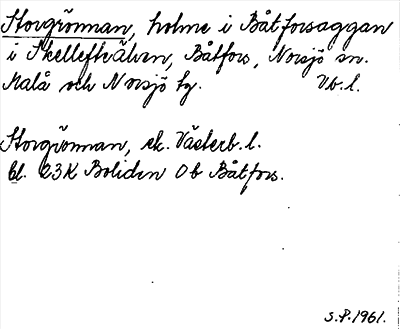 Storgrönnan, holme i Båtforsaggan
i Skellefteälven, Båtfors, Norsjö sn.
Malå och Norsjö tg. Vb.l.
Storgrönnan, ek. Västerb.l.
bl. 23K Boliden 0b Båtfors.
S.P.1961.